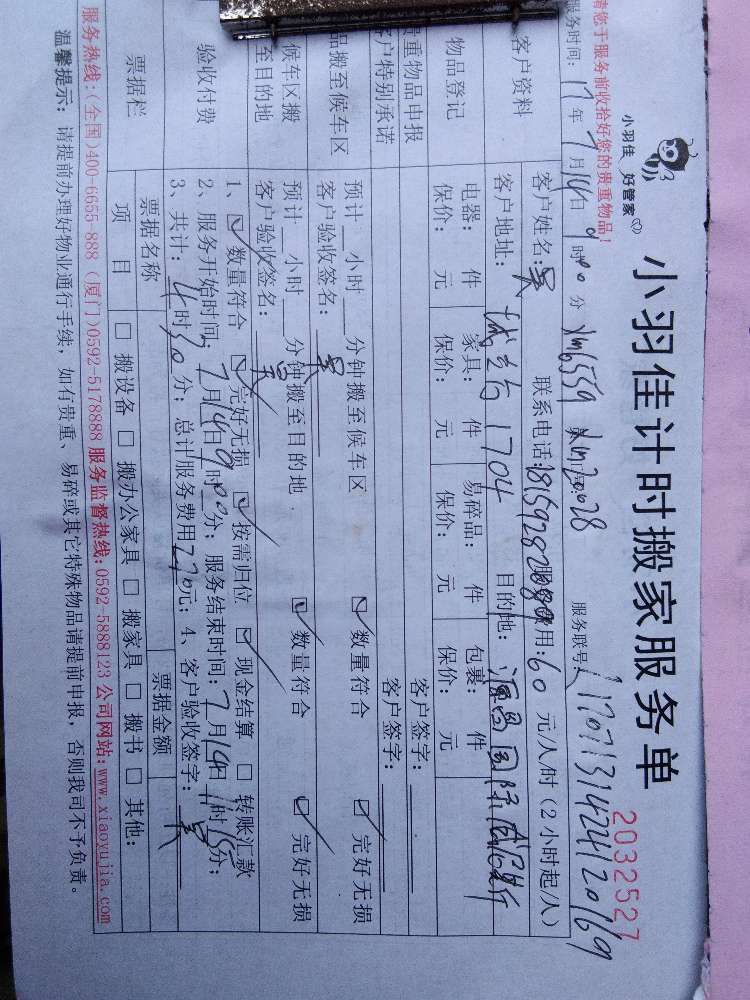 小羽佳计时搬家服务单
2032527
小羽佳 好管家
您于服务前收拾好您的贵重物品!
服务时间: 17年7月14日9时00分 服务联号:
客户资料 客户姓名:吴 联系电话: 用:60元/人/时(2小时起/人)
客户地址: 1704 目的地: 国际
物品登记 电器: 件 家具: 件 易碎品: 件 包裹: 件
保价: 元 保价: 元 保价: 元 保价: 元
贵重物品申报 客户签字:
客户特别承诺 客户签字:
品搬至候车区 预计 小时 分钟搬至候车区 数量符合 完好无损
客户验收签名:吴
候车区搬至目的地 预计 小时 分钟搬至目的地 数量符合 完好无损
客户验收签名:吴
验收付费 1、 数量符合 完好无损 按需归位 现金结算 转账汇款
2、服务开始时间:7月14日9时00分; 服务结束时间:7月14日11时15分;
3、共计:4时30分; 总计服务费用270元; 4、客户验收签字:吴
票据栏 票据名称 票据金额
项 目 搬设备 搬办公家具 搬家具 搬书 其他:
服务热线:(全国)400-6655-888 (厦门)0592-5178888 服务监督热线:0592-5888123 公司网站:www.xiaoyujia.com
温馨提示: 请提前办理好物业通行手续, 如有贵重、易碎或其它特殊物品请提前申报, 否则我司不予负责。